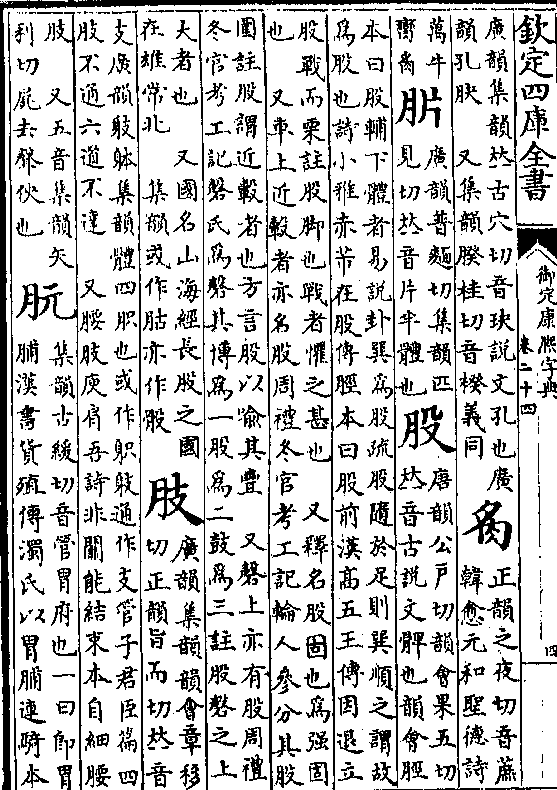 欽定四庫全書
御定康熙字典
卷二十四
四
廣韻集韻𠀤古穴切音玦說文孔也廣
韻孔肤 又集韻睽桂切音楑義同
肏
正韻之夜切音蔗
韓愈元和聖德詩
萬牛
臠肏
䏒
廣韻普麵切集韻匹
見切𠀤音片半體也
股
唐韻公戸切韻會果五切
𠀤音古說文髀也韻會脛
本曰股輔下體者易說卦巽爲股疏股隨於足則巽順之謂故
爲股也詩小雅赤芾在股傳脛本曰股前漢高五王傳因退立
股戰而栗註股脚也戰者懼之甚也 又釋名股固也爲强固
也 又車上近轂者亦名股周禮冬官考工記輪人參分其股
圍註股謂近轂者也方言股以喻其豐 又磬上亦有股周禮
冬官考工記磬氏爲磬其博爲一股爲二鼓爲三註股磬之上
大者也 又國名山海經長股之國
在雄常北 集韻或作䀇亦作骰
肢
廣韻集韻韻會章移
切正韻旨而切𠀤音
支廣韻肢躰集韻體四胑也或作䏯𨈛通作支管子君臣篇四
肢不通六道不達 又𦝫肢庾肩吾詩非關能結束本自細腰
肢 又五音集韻矢
利切屍去聲伎也
䏓
集韻古緩切音管胃府也一曰卽胃
脯漢書貨殖傳濁氏以胃脯連騎本